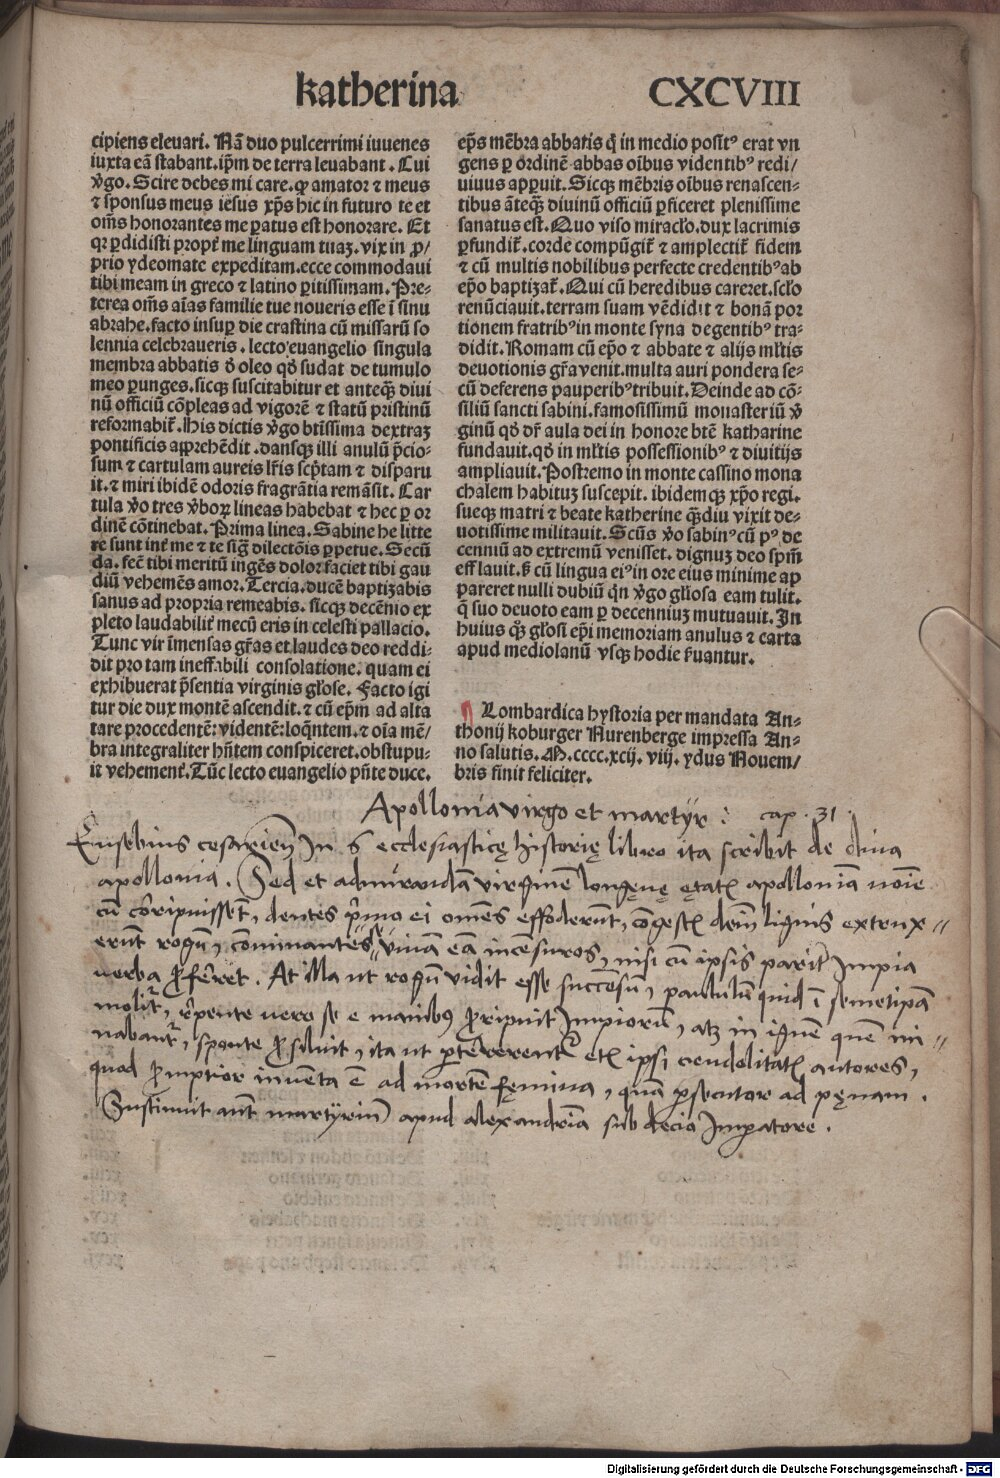 katherina
CXCVIII
cipiens eleuari. Nã duo pulcerrimi iuuenes
iuxta eã stabant. ip̃m de terra leuabant. Cui
v̾go. Scire debes mi care. ꝙ amator ⁊ meus
⁊ sponsus meus iesus xp̃s hic in futuro te et
om̃s honorantes me paratus est honorare. Et
qꝛ ꝑdidisti propt̾ me linguam tuaꝫ. vix in ꝓ/
prio ydeomate expeditam. ecce commodaui
tibi meam in greco ⁊ latino ꝑitissimam. Pre-
terea om̃s aĩas familie tue noueris esse ĩ sinu
abrahe. facto insuꝑ die crastina cũ missarũ so
lennia celebraueris. lecto euangelio singula
membra abbatis ð oleo qð sudat de tumulo
meo ꝑunges. sicqꝫ suscitabitur et anteqꝫ̃ diui
nũ officiũ cõpleas ad vigorẽ ⁊ statũ pristinũ
reformabit̾. His dictis v̾go btĩssima dextraꝫ
pontificis apprehẽdit. dansqꝫ illi anulũ p̃cio-
sum ⁊ cartulam aureis lr̃is scp̃tam ⁊ disparu
it. ⁊ miri ibidẽ odoris fragrãtia remãsit. Car
tula v̾o tres v̾boꝝ lineas habebat ⁊ hec ꝑ or
dinẽ cõtinebat. Prima linea. Sabine he litte
re sunt int̾ me ⁊ te sig̃ dilectõis ꝑpetue. Secũ
da. fec̃ tibi meritũ ingẽs dolor faciet tibi gau
diũ vehemẽs amor. Tercia. ducẽ baptizabis
sanus ad propria remeabis. sicqꝫ decẽnio ex
pleto laudabilit̾ mecũ eris in celesti pallacio.
Tunc vir ĩmensas gr̃as et laudes deo reddi-
dit pro tam ineffabili consolatione. quam ei
exhibuerat p̃sentia virginis gl̃ose. Facto igi
tur die dux montẽ ascendit. ⁊ cũ ep̃m ad alta
tare procedentẽ: videntẽ: loq̃ntem. ⁊ oĩa mẽ/
bra integraliter hñtem conspiceret. obstupu-
it vehement̾. Tũc lecto euangelio pñte duce.
ep̃s mẽbra abbatis q̃ in medio posit⁹ erat vn
gens ꝑ ordinẽ abbas oĩbus videntib⁹ redi/
uiuus apꝑuit. Sicqꝫ mẽbris oĩbus renascen-
tibus ãteqꝫ̃ diuinũ officiũ ꝑficeret plenissime
sanatus est. Quo viso miracl̃o. dux lacrimis
ꝑfundit̾. corde compũgit̾ ⁊ amplectit̾ fidem
⁊ cũ multis nobilibus perfecte credentib⁹ ab
ep̃o baptizat̾. Qui cũ heredibus careret. scl̃o
renũciauit. terram suam vẽdidit ⁊ bonã por
tionem fratrib⁹ in monte syna degentib⁹ tra-
didit. Romam cũ ep̃o ⁊ abbate ⁊ alijs ml̃tis
deuotionis gr̃a venit. multa auri pondera se-
cũ deferens pauperib⁹ tribuit. Deinde ad cõ-
siliũ sancti sabini. famosissimũ monasteriũ v̾
ginũ qð dr̃ aula dei in honore btẽ katharine
fundauit. qð in ml̃tis possessionib⁹ ⁊ diuitijs
ampliauit. Postremo in monte cassino mona
chalem habituꝫ suscepit. ibidemqꝫ xp̃o regi.
sueqꝫ matri ⁊ beate katherine qꝫ̃diu vixit de-
uotissime militauit. Scũs v̾o sabin⁹ cũ p⁹ de
cenniũ ad extremũ venisset. dignuꝫ deo spm̃
efflauit. ß cũ lingua ei⁹ in ore eius minime ap
pareret nulli dubiũ qͥn v̾go gl̃iosa eam tulit.
q̃ suo deuoto eam ꝑ decenniuꝫ mutuauit. In
huius qꝫ̾ gl̃osi ep̃i memoriam anulus ⁊ carta
apud mediolanũ vsqꝫ hodie ẜuantur.
Lombardica hystoria per mandata An-
thonij koburger Nurenberge impressa An-
no salutis. M.cccc.xcij. viij. ydus Nouem/
bris finit feliciter.
Apollonia virgo et martÿr : cap. 31.
Eusebius cesarieñ In 6 ecclesiasticę historię libro ita scribit de diua
apollonia. Sed et admirandã virginẽ longęuę ętatꝭ apolloniã noĩe
cũ cõripuissẽt, dentes p̾mo ei omẽs effoderũt, cõgestꝭ deĩn lignis extrux //
erũt rogũ, cõminantes viuã eã incẽsuros, nisi cũ ipsis parit̾ Impia
verba ꝓferret. At illa ut rogũ vidit esse succẽsũ, paululũ quid ĩ semetipsã
molit̾, repente vero se e manibus ꝓripuit Impiorũ, atqꝫ in ignẽ quẽ mi //
nabant̾, sponte ꝓsiluit, ita ut ꝑtererent̾ etiã ipsi crudelitatꝭ autores,
quod ꝓmptior inuẽta ẽ ad mortẽ fęmina, quã ꝑsecutor ad pęnam.
Sustinuit aũt martÿriũ apud alexandriã sub decio Imꝑatore.
Digitalisierung gefördert durch die Deutsche Forschungsgemeinschaft - DFG